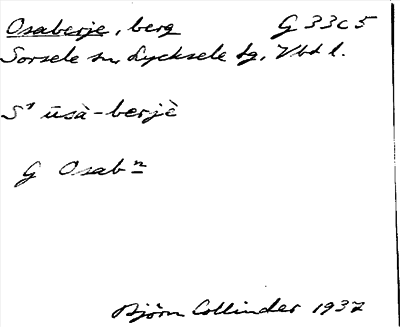 Osaberje, berg G 33c5
Sorsele sn Lycksele tg, Vbd l.
S¹ ūsà-berjè
G Osab n
Björn Collinder 1937